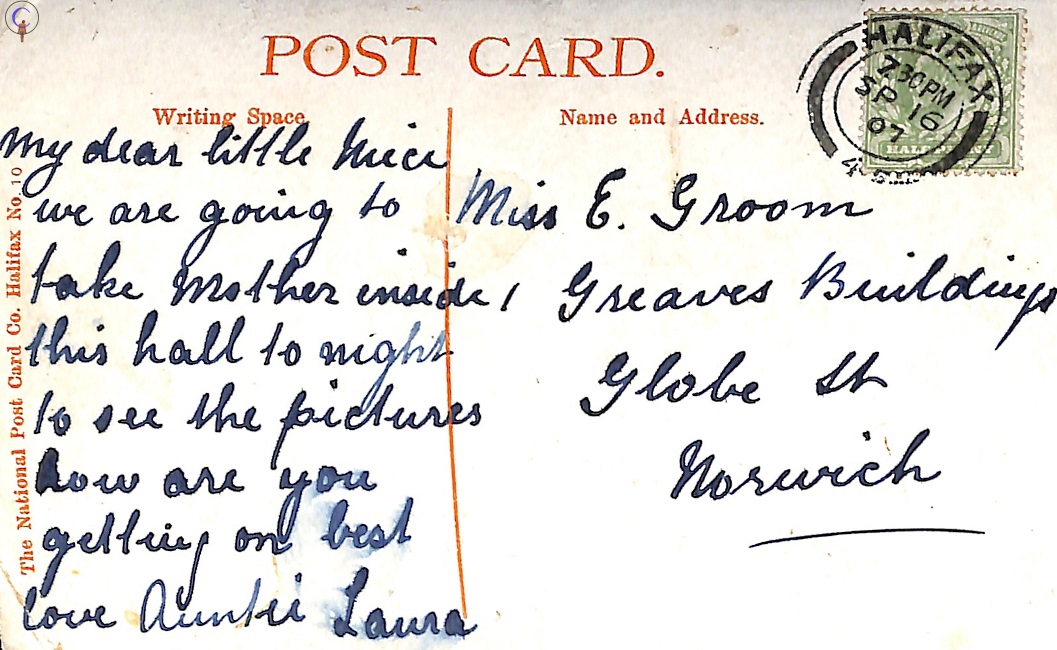 POST CARD.
Writing Space.
Name and Address.
The National Post Card Co. Halifax No. 10
My dear little Niece
we are going to
take Mother inside
this hall to night
to see the pictures
how are you
getting on best
love Auntie Laura
Miss E. Groom
1 Greaves Buildings
Globe St
Norwich
HALIFAX
7.30 PM
SP 16
07
HALFPENNY